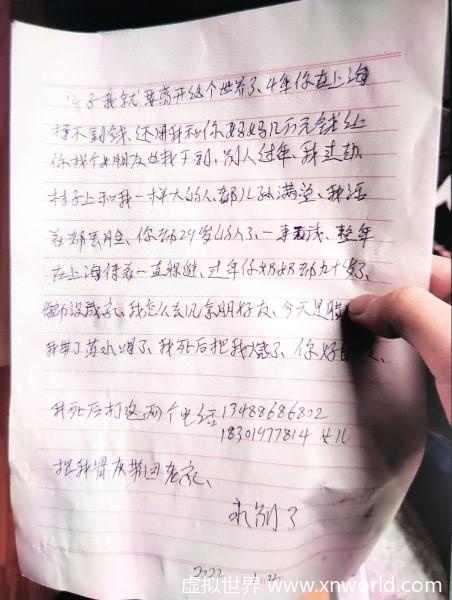 儿子我就要离开这个世界了、4年你在上海
挣不到钱、还用我和你妈妈几万元钱让
你找个女朋友也找不到，别人过年、我过劫
村子上和我一样大的人、都儿孙满堂、我活
着都丢脸、你都29岁的人了、一事无成、整年
在上海待着一直躲避、过年你奶奶都九十岁了、
你都没成家、我怎么去见亲朋好友、今天是腊
我带了药水喝了、我死后把我烧了、你好
我死后打这两个电话13488686802
18301977814 女儿
把我骨灰带回老家、
永别了
虚拟世界 www.xnworld.com